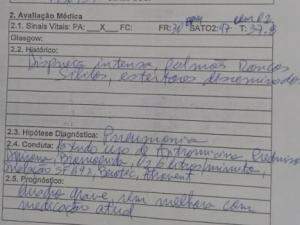 2. Avaliação Médica
2.1. Sinais Vitais: PA: X FC: FR: 30 SATO2: 97 T: 37,9
Glasgow:
2.2. Histórico:
Dispneia intensa, pulmões roncos
Sibilos, estertores disseminados
2.3. Hipótese Diagnóstica: Pneumonia
2.4. Conduta: fazendo uso de Azitromicina,
O2 6 litros/minuto,
SF 0,9%, Berotec, Atrovent
2.5. Prognóstico:
Quadro grave sem melhora com
medicação atual